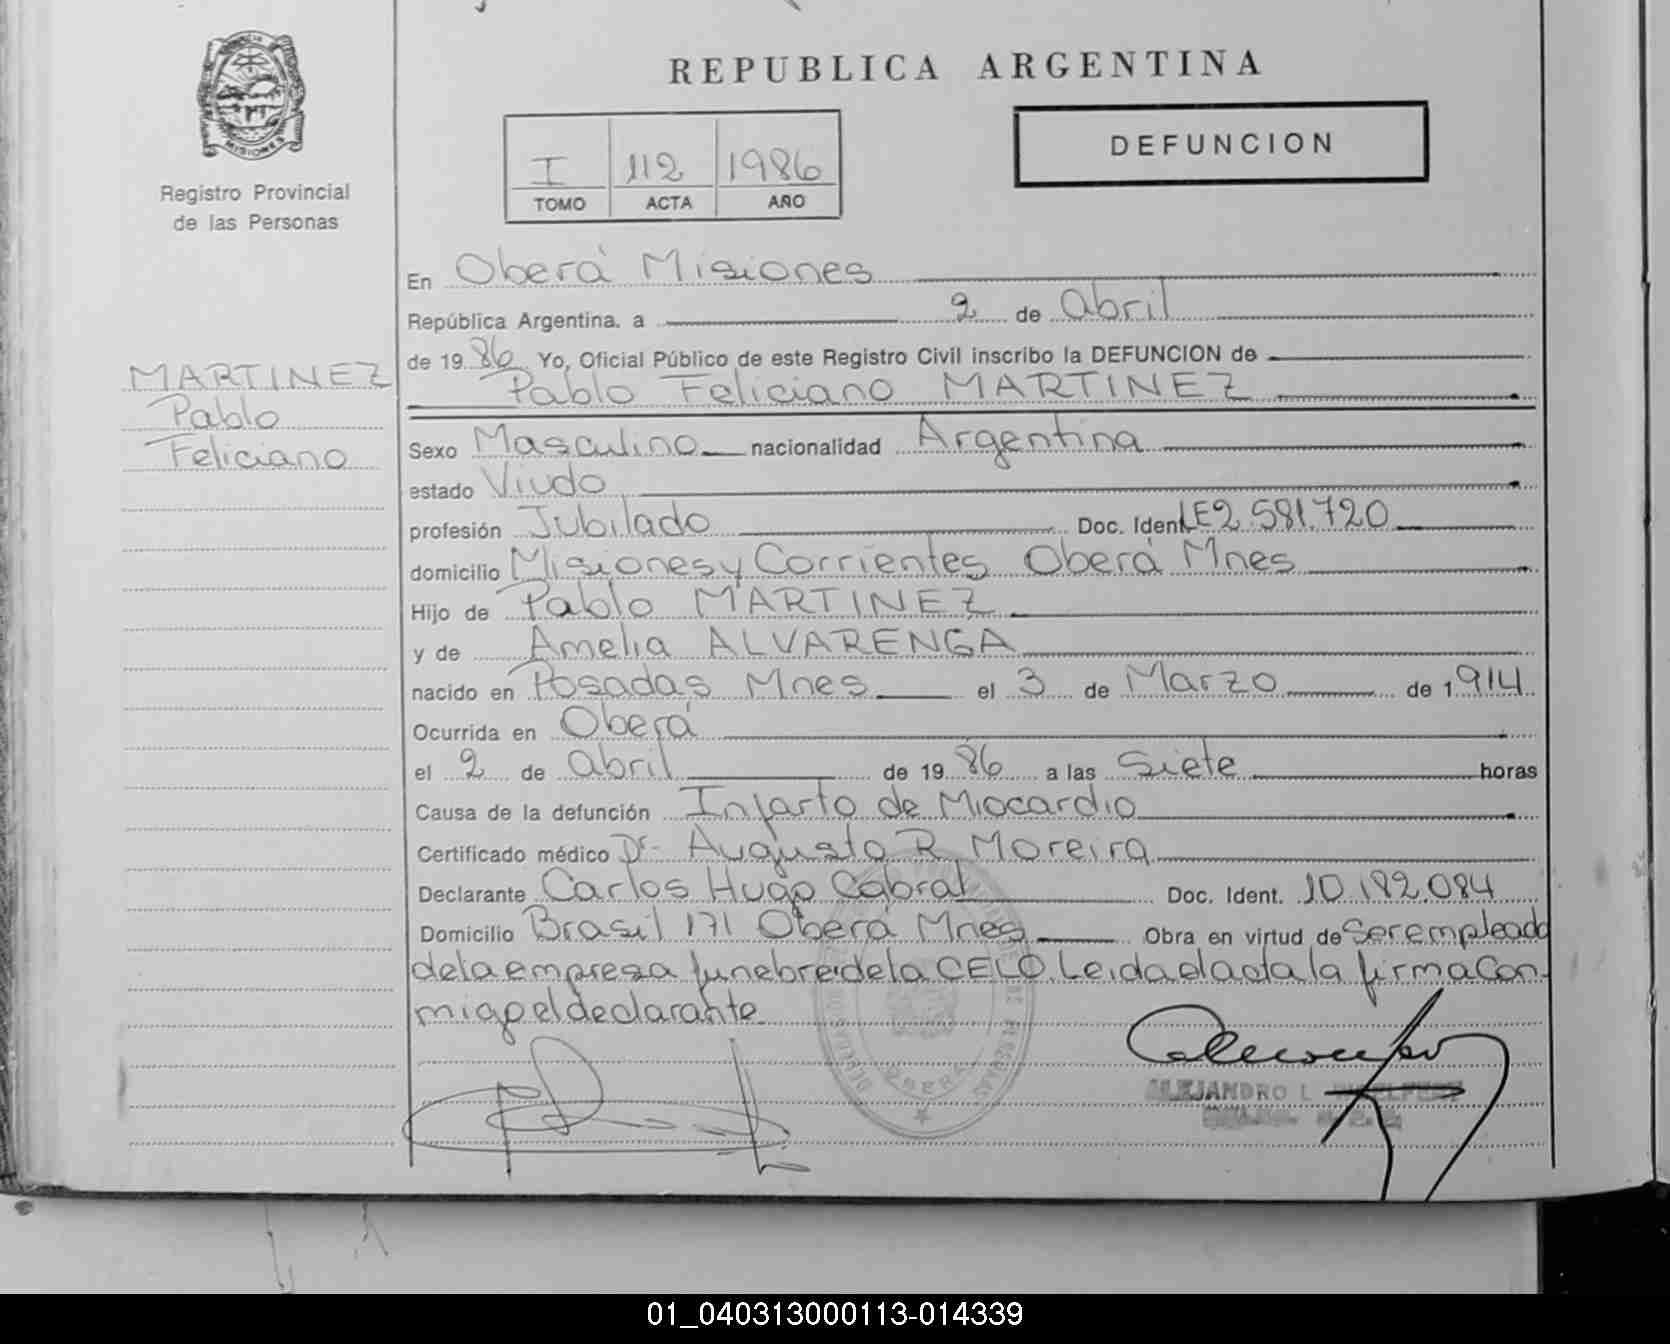 REPUBLICA ARGENTINA
MISIONES
Registro Provincial
de las Personas
I 112 1986
TOMO ACTA AÑO
DEFUNCION
MARTINEZ
Pablo
Feliciano
En Oberá Misiones
República Argentina, a 2 de abril
de 1986 Yo, Oficial Público de este Registro Civil inscribo la DEFUNCION de
Pablo Feliciano MARTINEZ
Sexo Masculino nacionalidad Argentina
estado Viudo
profesión Jubilado Doc. Ident. LE 2.581.720
domicilio Misiones y Corrientes Oberá Mnes
Hijo de Pablo MARTINEZ
y de Amelia ALVARENGA
nacido en Posadas Mnes el 3 de Marzo de 1914
Ocurrida en Oberá
el 2 de abril de 1986 a las Siete horas
Causa de la defunción Infarto de Miocardio
Certificado médico Dr. Augusto R Moreira
Declarante Carlos Hugo Cabral Doc. Ident. 10.192.084
Domicilio Brasil 171 Oberá Mnes Obra en virtud de Ser empleado
de la empresa funebre de la CELO. Leida el acta la firma Con
migo el declarante
OBERA
ALEJANDRO L.
01_040313000113-014339